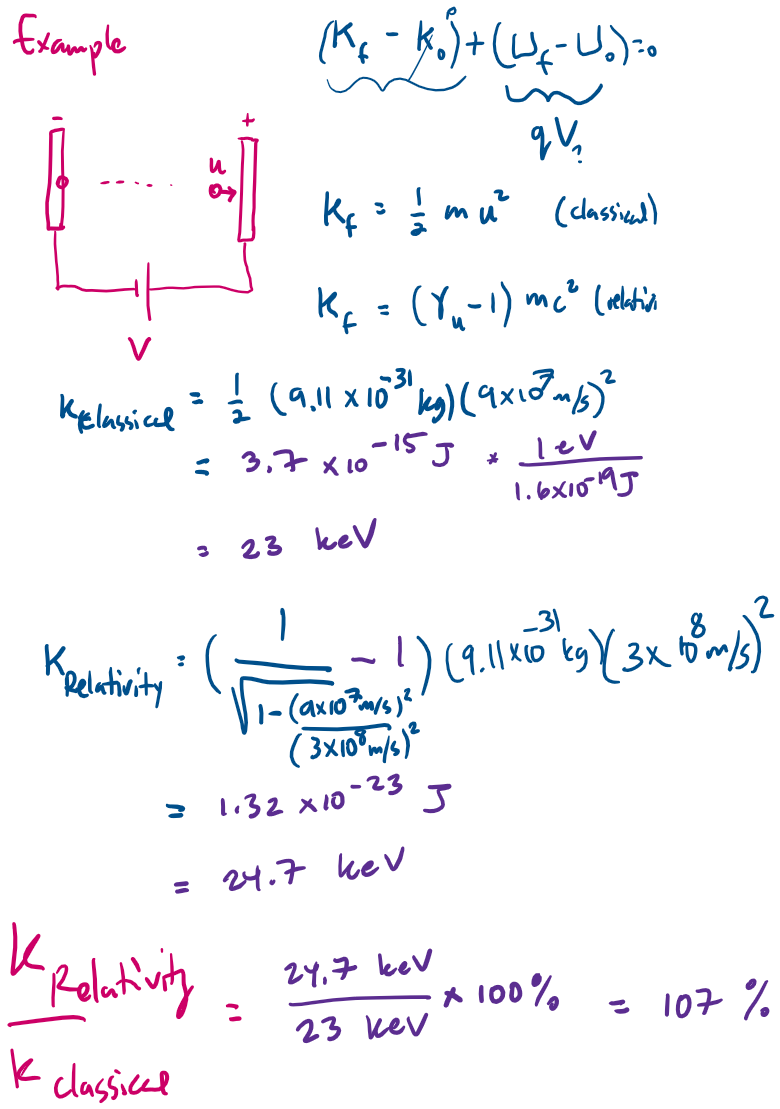 Example
(K_f - K_0)^0 + (U_f - U_0) = 0
qV?
- +
u
V
K_f = 1/2 m u² (classical)
K_f = (γ_u - 1) mc² (relativi
K_classical = 1/2 (9.11 × 10^-31 kg)(9×10^7 m/s)²
= 3.7 × 10^-15 J * 1 eV / 1.6×10^-19 J
= 23 keV
K_Relativity = (1 / √(1 - (9×10^7 m/s)² / (3×10^8 m/s)²) - 1) (9.11×10^-31 kg)(3× 10^8 m/s)²
= 1.32 × 10^-23 J
= 24.7 keV
K_Relativity / K_classical = 24.7 keV / 23 keV * 100% = 107 %